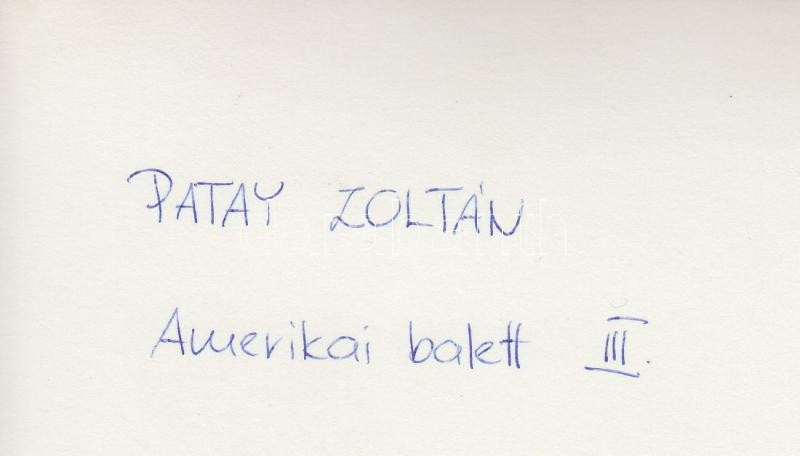 PATAY ZOLTÁN
Amerikai balett III.
darabanth